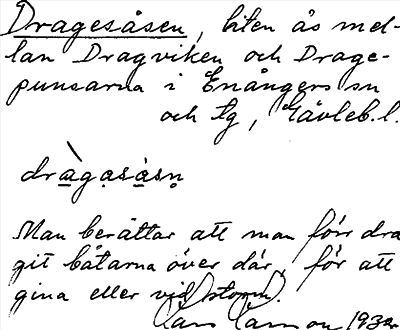 Dragesåsen, liten ås mel-
lan Dragviken och Drage-
punsarna i Enångers sn
och tg, Gävleb.l.
dràgasàsn
Man berättar att man förr dra
git båtarna över där, för att
gina eller vid storm).
Lars Larsson 1932